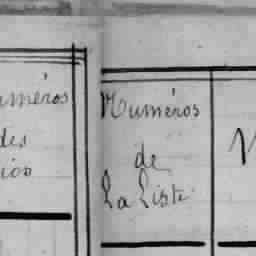 uméros
des
ios
Numéros
de
La Liste